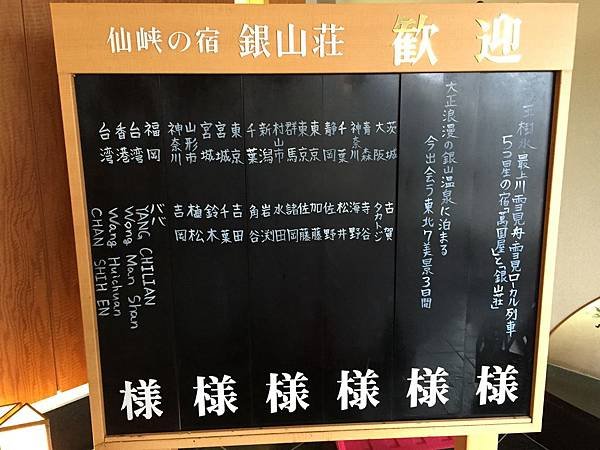 仙峡の宿 銀山荘 歓迎
樹氷 最上川雪見舟 雪見ローカル列車
5つ星の宿「萬国屋」と「銀山荘」
大正浪漫の銀山温泉に泊まる
今出会う東北7美景3日間
茨城 古賀
大阪 タカトジ
青森 寺谷
神奈川 海野
千葉 松井
静岡 佐野
東京 加藤
東京 佐藤
群馬 諸岡
村山市 水田
新潟 岩渕
千葉 角
東京 吉田
宮城 千葉
宮城 鈴木
山形市 植松
神奈川 吉岡
福岡 ババ
YANG CHILIAN
台湾 Wong Man Shan
香港 Wang Huichuan
台湾 CHAN SHIH EN
様 様 様 様 様 様